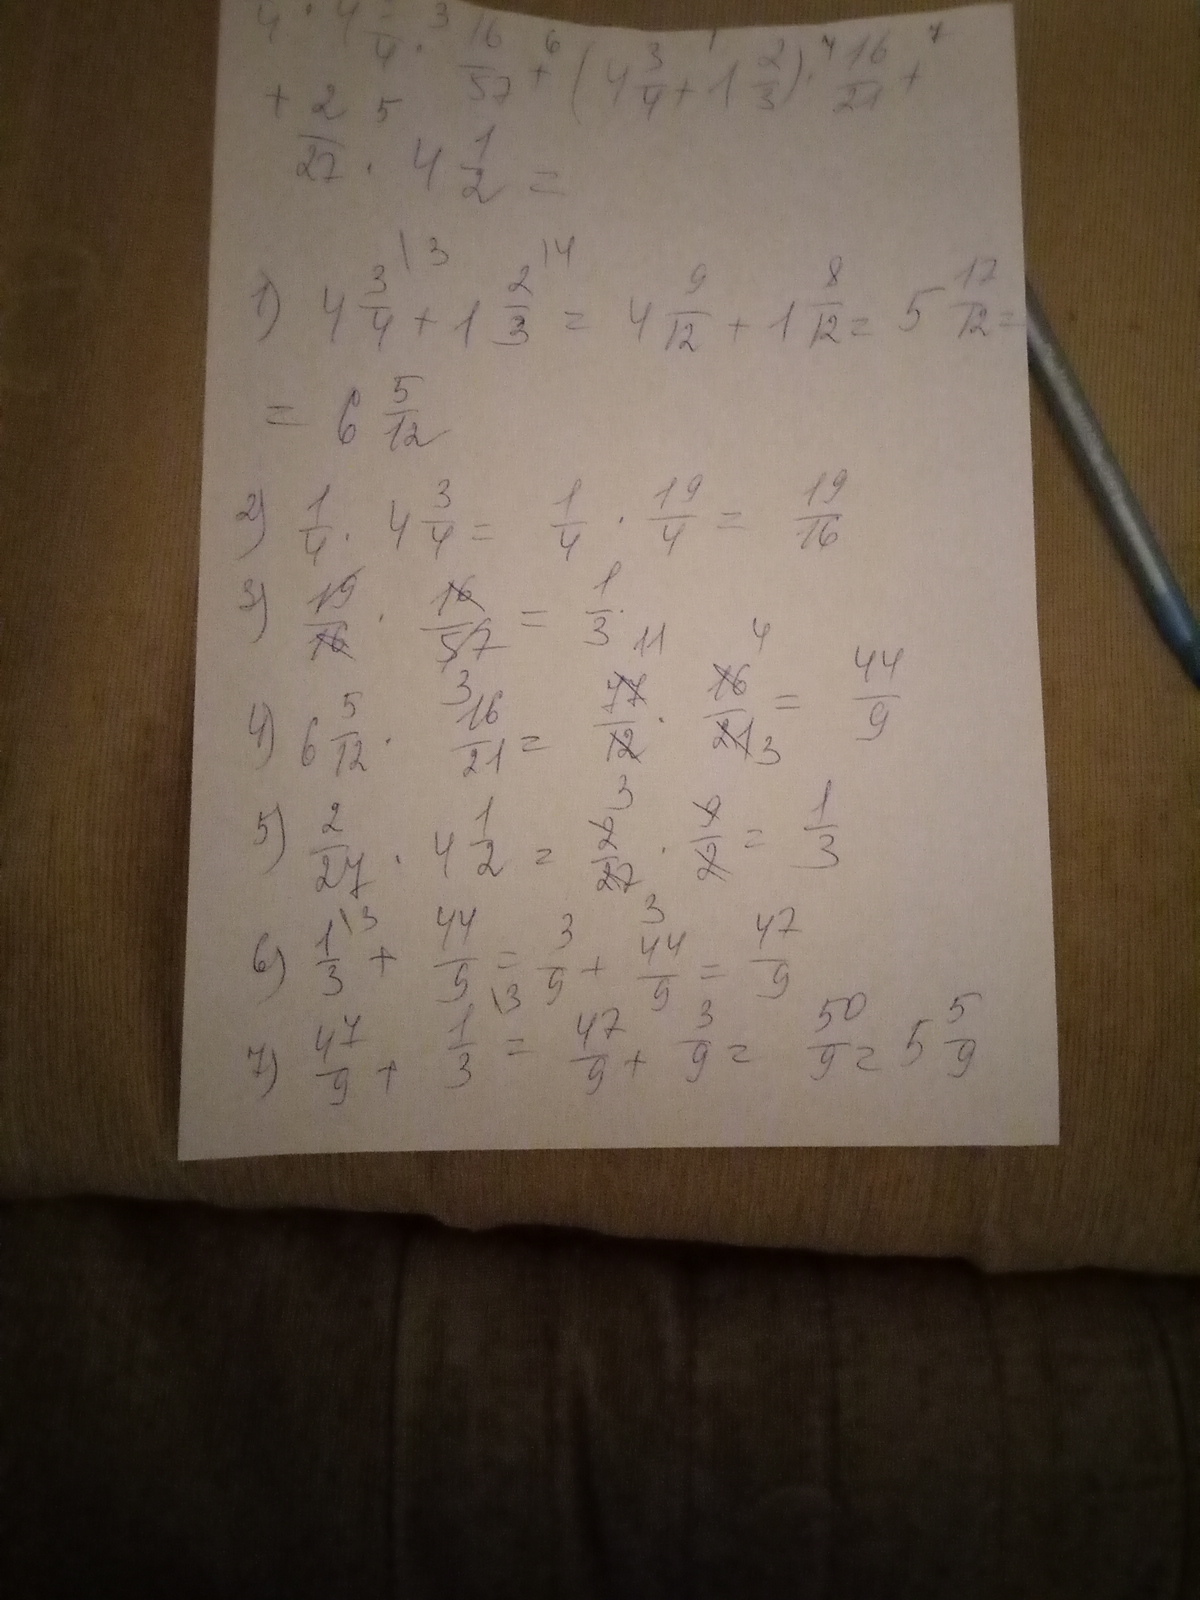 4 · 4 3/4 · 16/57 + (4 3/4 + 1 2/3) · 16/21 +
+ 2/27 · 4 1/2 =
1) 4 3/4 \3 + 1 2/3 \4 = 4 9/12 + 1 8/12 = 5 17/12 =
= 6 5/12
2) 1/4 · 4 3/4 = 1/4 · 19/4 = 19/16
3) 19/16 · 16/57 = 1/3
4) 6 5/12 · 16/21 = 77/12 · 16/21 = 44/9
5) 2/27 · 4 1/2 = 2/27 · 9/2 = 1/3
6) 1/3 \3 + 44/9 = 3/9 + 44/9 = 47/9
7) 47/9 + 1/3 \3 = 47/9 + 3/9 = 50/9 = 5 5/9